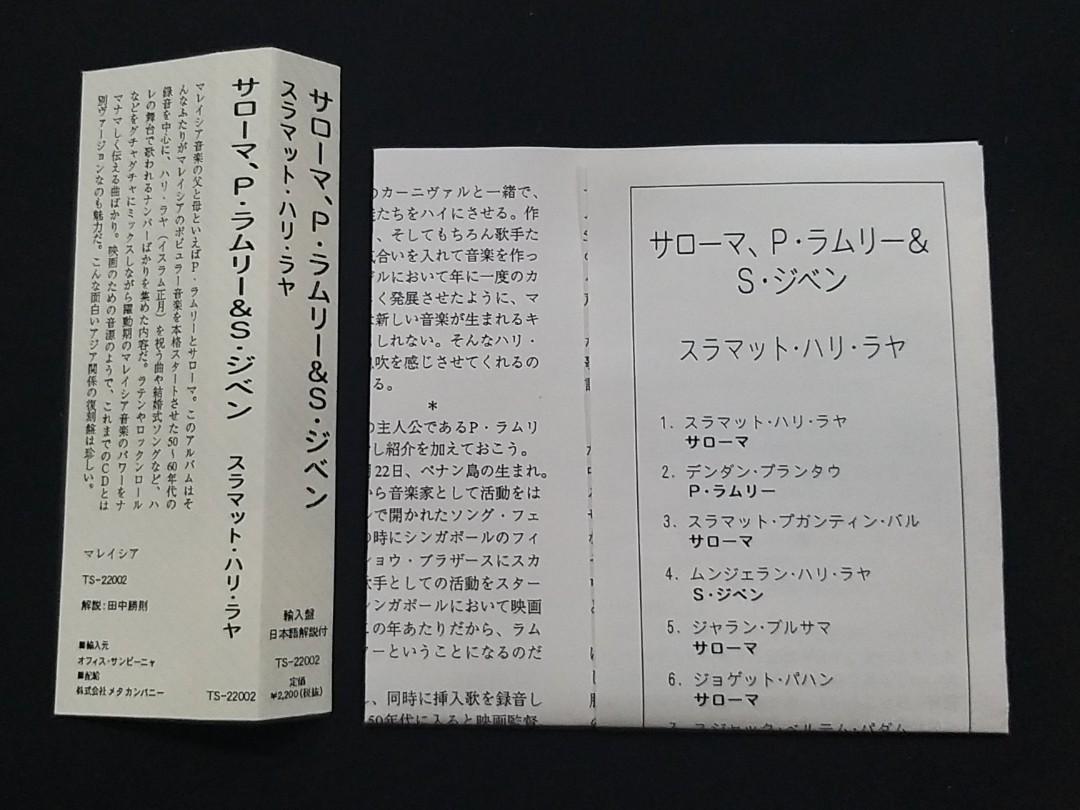 サローマ、P・ラムリー&S・ジベン
スラマット・ハリ・ラヤ
輸入盤
日本語解説付
TS-22002
定価
¥2,200(税抜)
サローマ、P・ラムリー&S・ジベン　スラマット・ハリ・ラヤ
TS-22002
マレイシア音楽の父と母といえばP・ラムリーとサローマ。このアルバムはそ
んなふたりがマレイシアのポピュラー音楽を本格スタートさせた50〜60年代の
録音を中心に、ハリ・ラヤ（イスラム正月）を祝う曲や結婚式ソングなど、ハ
レの舞台で歌われるナンバーばかりを集めた内容だ。ラテンやロックンロール
などをグチャグチャにミックスしながら躍動期のマレイシア音楽のパワーをナ
マナマしく伝える曲ばかり。映画のための音源のようで、これまでのCDとは
別ヴァージョンなのも魅力だ。こんな面白いアジア関係の復刻盤は珍しい。
マレイシア
TS-22002
解説:田中勝則
■輸入元
オフィス・サンビーニャ
■配給
株式会社メタカンパニー
のカーニヴァルと一緒で、
たちをハイにさせる。作
、そしてもちろん歌手た
合いを入れて音楽を作っ
ルにおいて年に一度のカ
く発展させたように、マ
新しい音楽が生まれるキ
しれない。そんなハリ・
吹を感じさせてくれるの
る。
*
の主人公であるP・ラムリ
し紹介を加えておこう。
月22日、ペナン島の生まれ。
から音楽家として活動をは
ンで開かれたソング・フェ
の時にシンガポールのフィ
ショウ・ブラザースにスカ
手としての活動をスター
シンガポールにおいて映画
の年あたりだから、ラム
ーということになるのだ
、同時に挿入歌を録音し
50年代に入ると映画監督
サローマ、P・ラムリー&
S・ジベン
スラマット・ハリ・ラヤ
1. スラマット・ハリ・ラヤ
サローマ
2. デンダン・プランタウ
P・ラムリー
3. スラマット・プガンティン・バル
サローマ
4. ムンジェラン・ハリ・ラヤ
S・ジベン
5. ジャラン・ブルサマ
サローマ
6. ジョゲット・パハン
サローマ